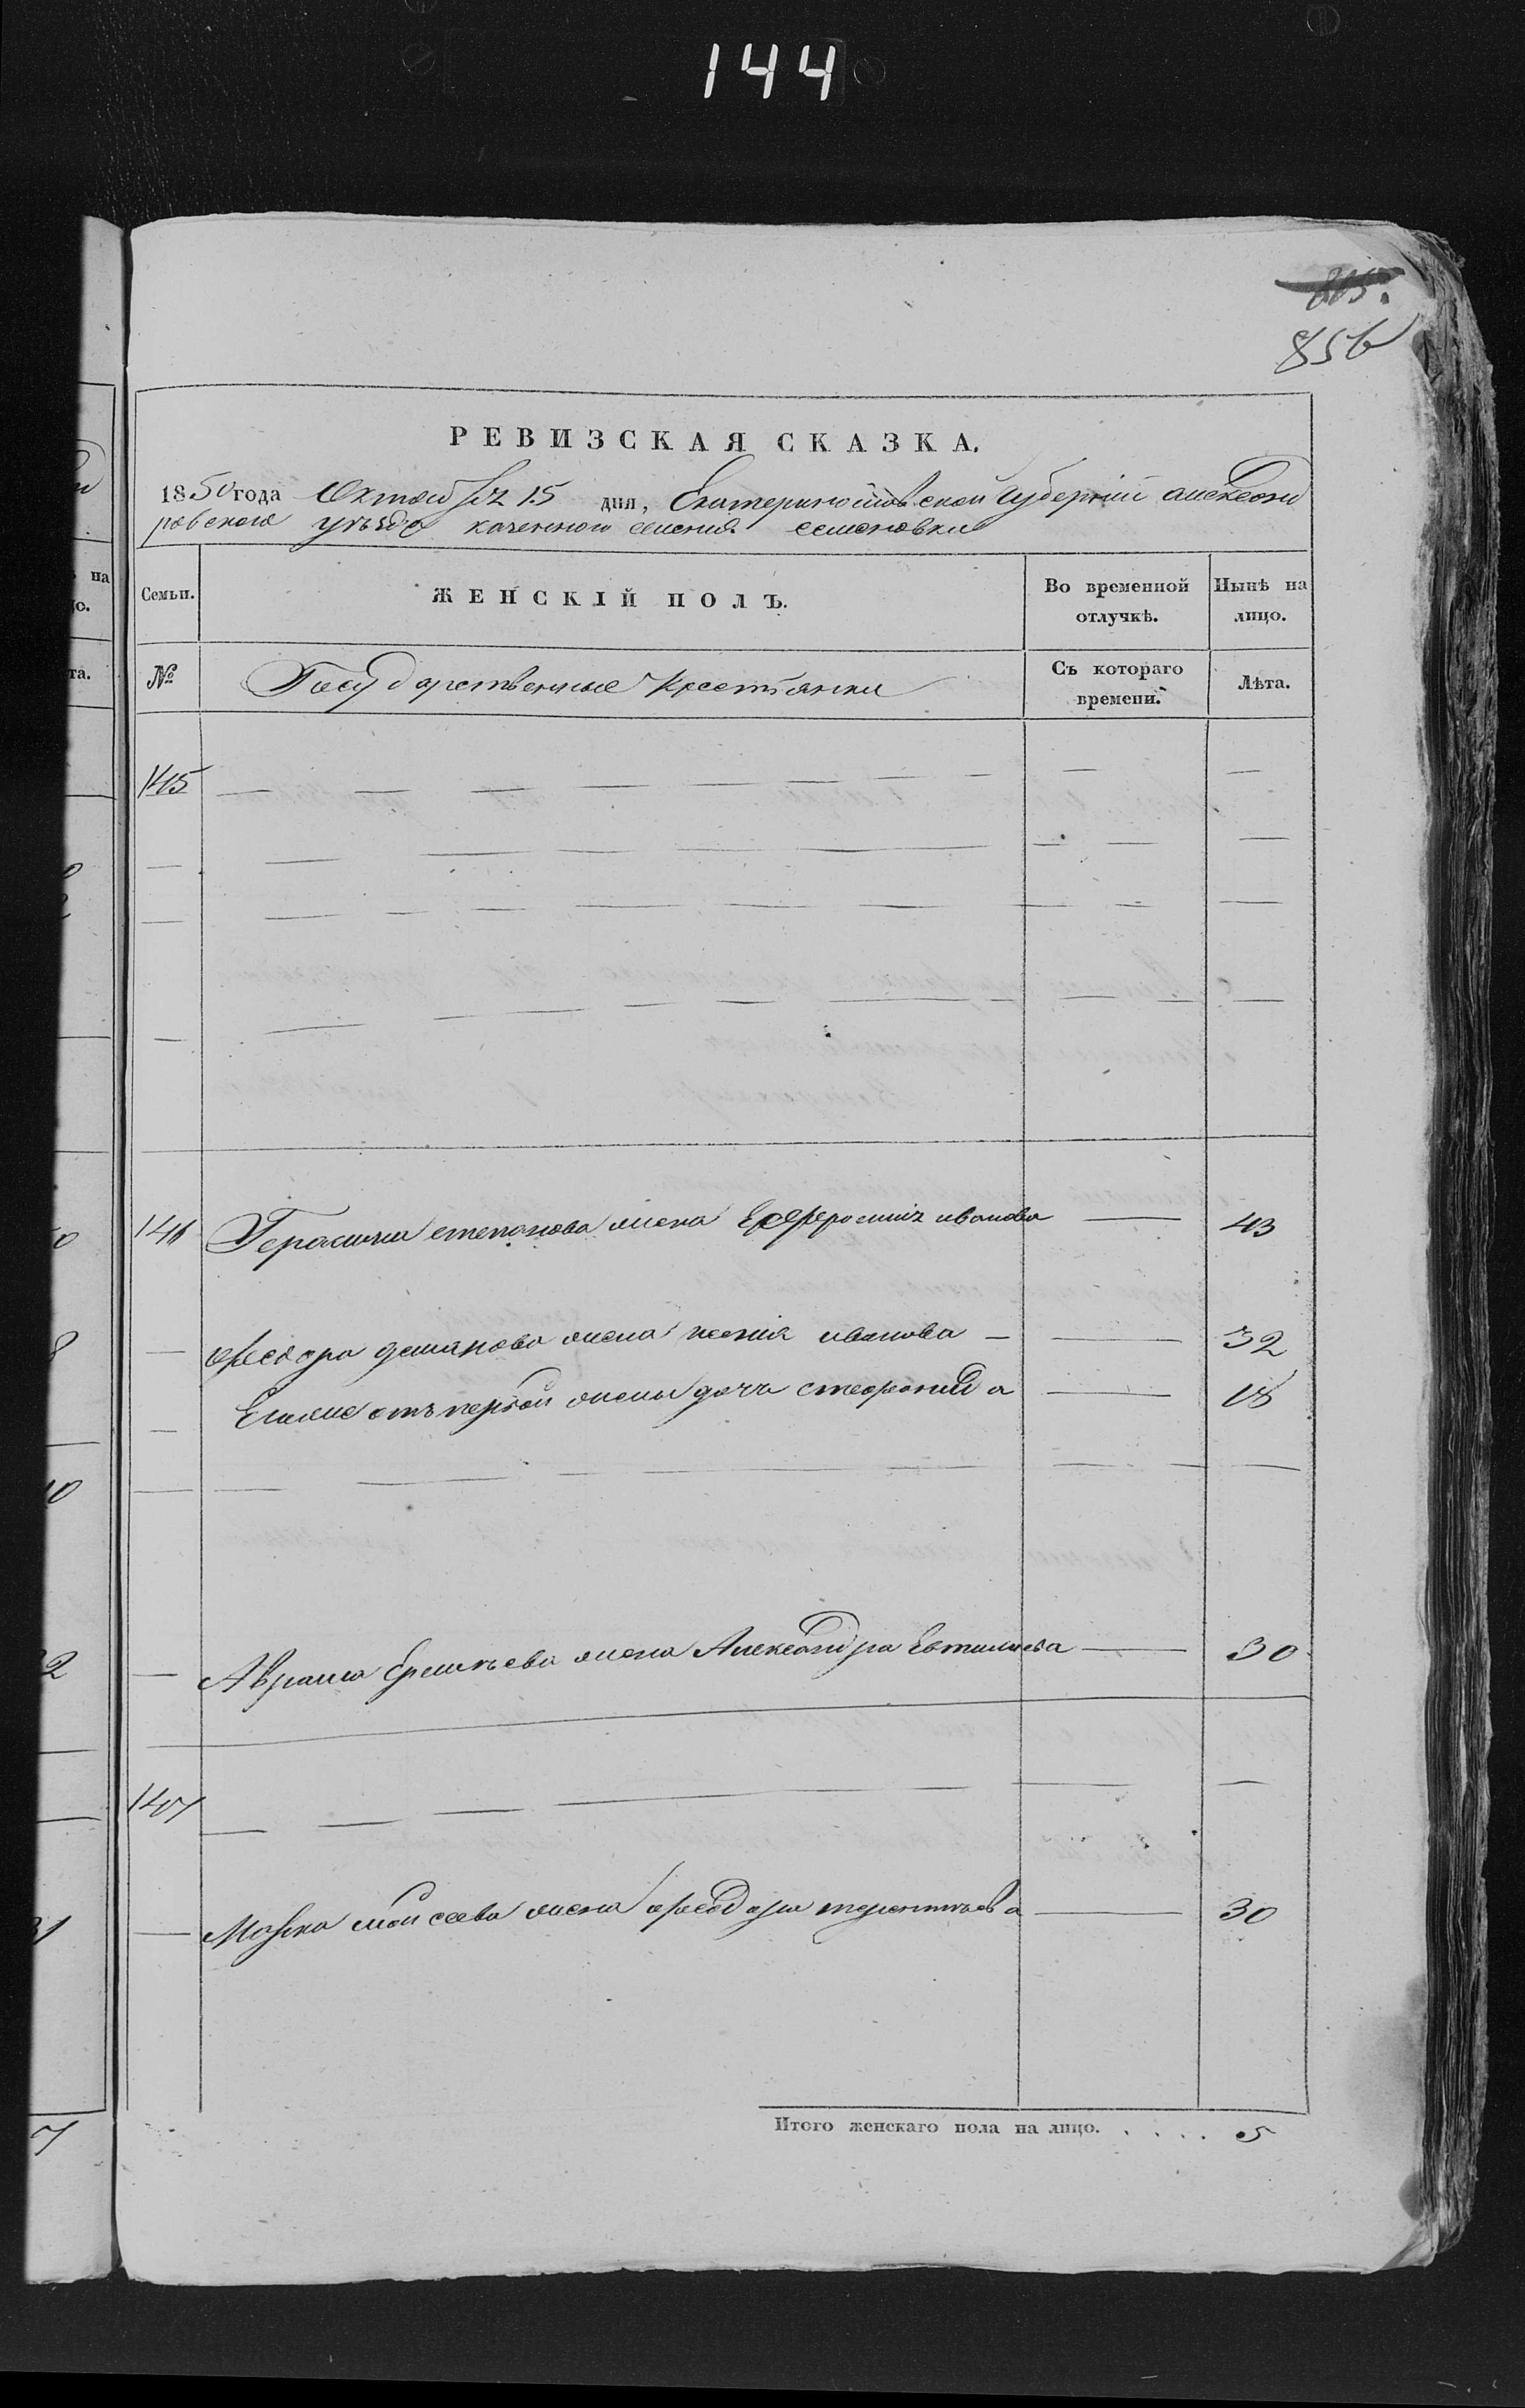 144
805.
856
РЕВИЗСКАЯ СКАЗКА.
1850 года Октября 15 дня, Екатеринославской Губернии Александ
ровского уезда казенного селения семеновки
на
Семьи.
ЖЕНСКІЙ ПОЛЪ.
Во временной отлучкѣ.
Нынѣ на лицо.
№
Государственные Крестьянки
Съ котораго времени.
Лѣта.
145
146 Герасима степанова жена Ефросиния иванова 43
Федора демянова жена ксения иванова 32
Егоже отъ первой жены дочь стефанида 18
Аврама Еремеева жена Александра Евтихиева 30
147
Марка моисеева жена федора терентьева 30
Итого женскаго пола на лицо. . . . . 5